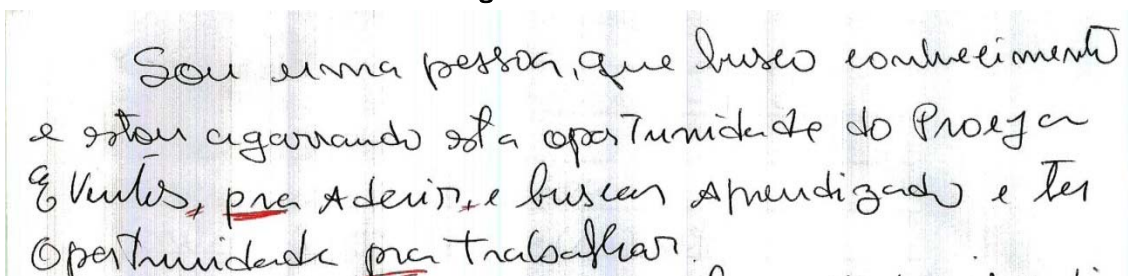 Sou uma pessoa, que busco conhecimento
e estou agarrando esta oportunidade do Proeja
Eventos, pra Aderir, e buscar Aprendizado e ter
Oportunidade pra trabalhar.